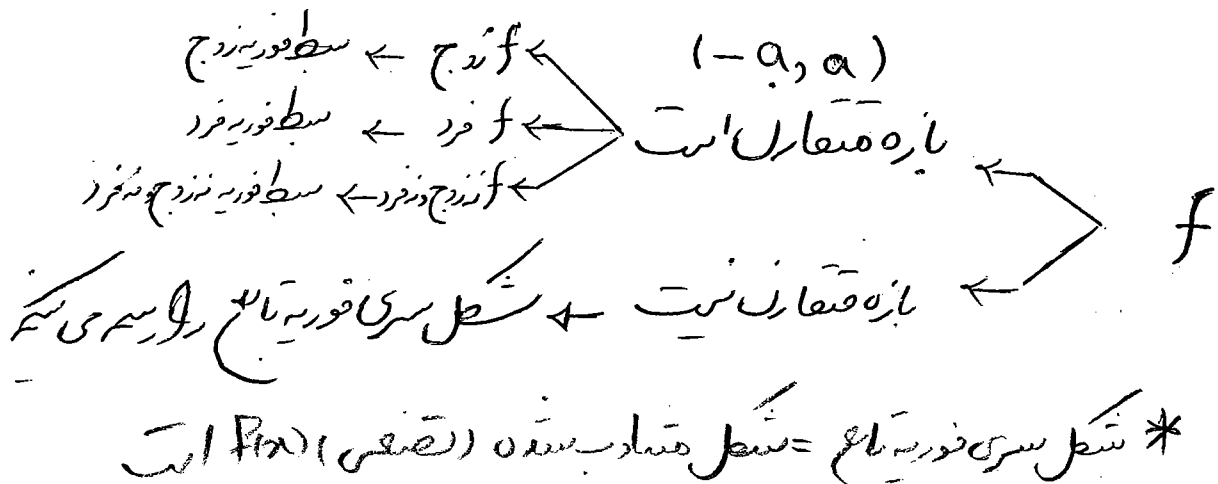 (-a, a)
f زوج ← بسط فوریه زوج
بازه متقارن است
f فرد ← بسط فوریه فرد
f نه زوج و نه فرد ← بسط فوریه نه زوج و نه فرد
f
بازه متقارن نیست ← شکل سری فوریه تابع را رسم می کنیم
* شکل سری فوریه تابع = شکل متناوب شده f(x) است